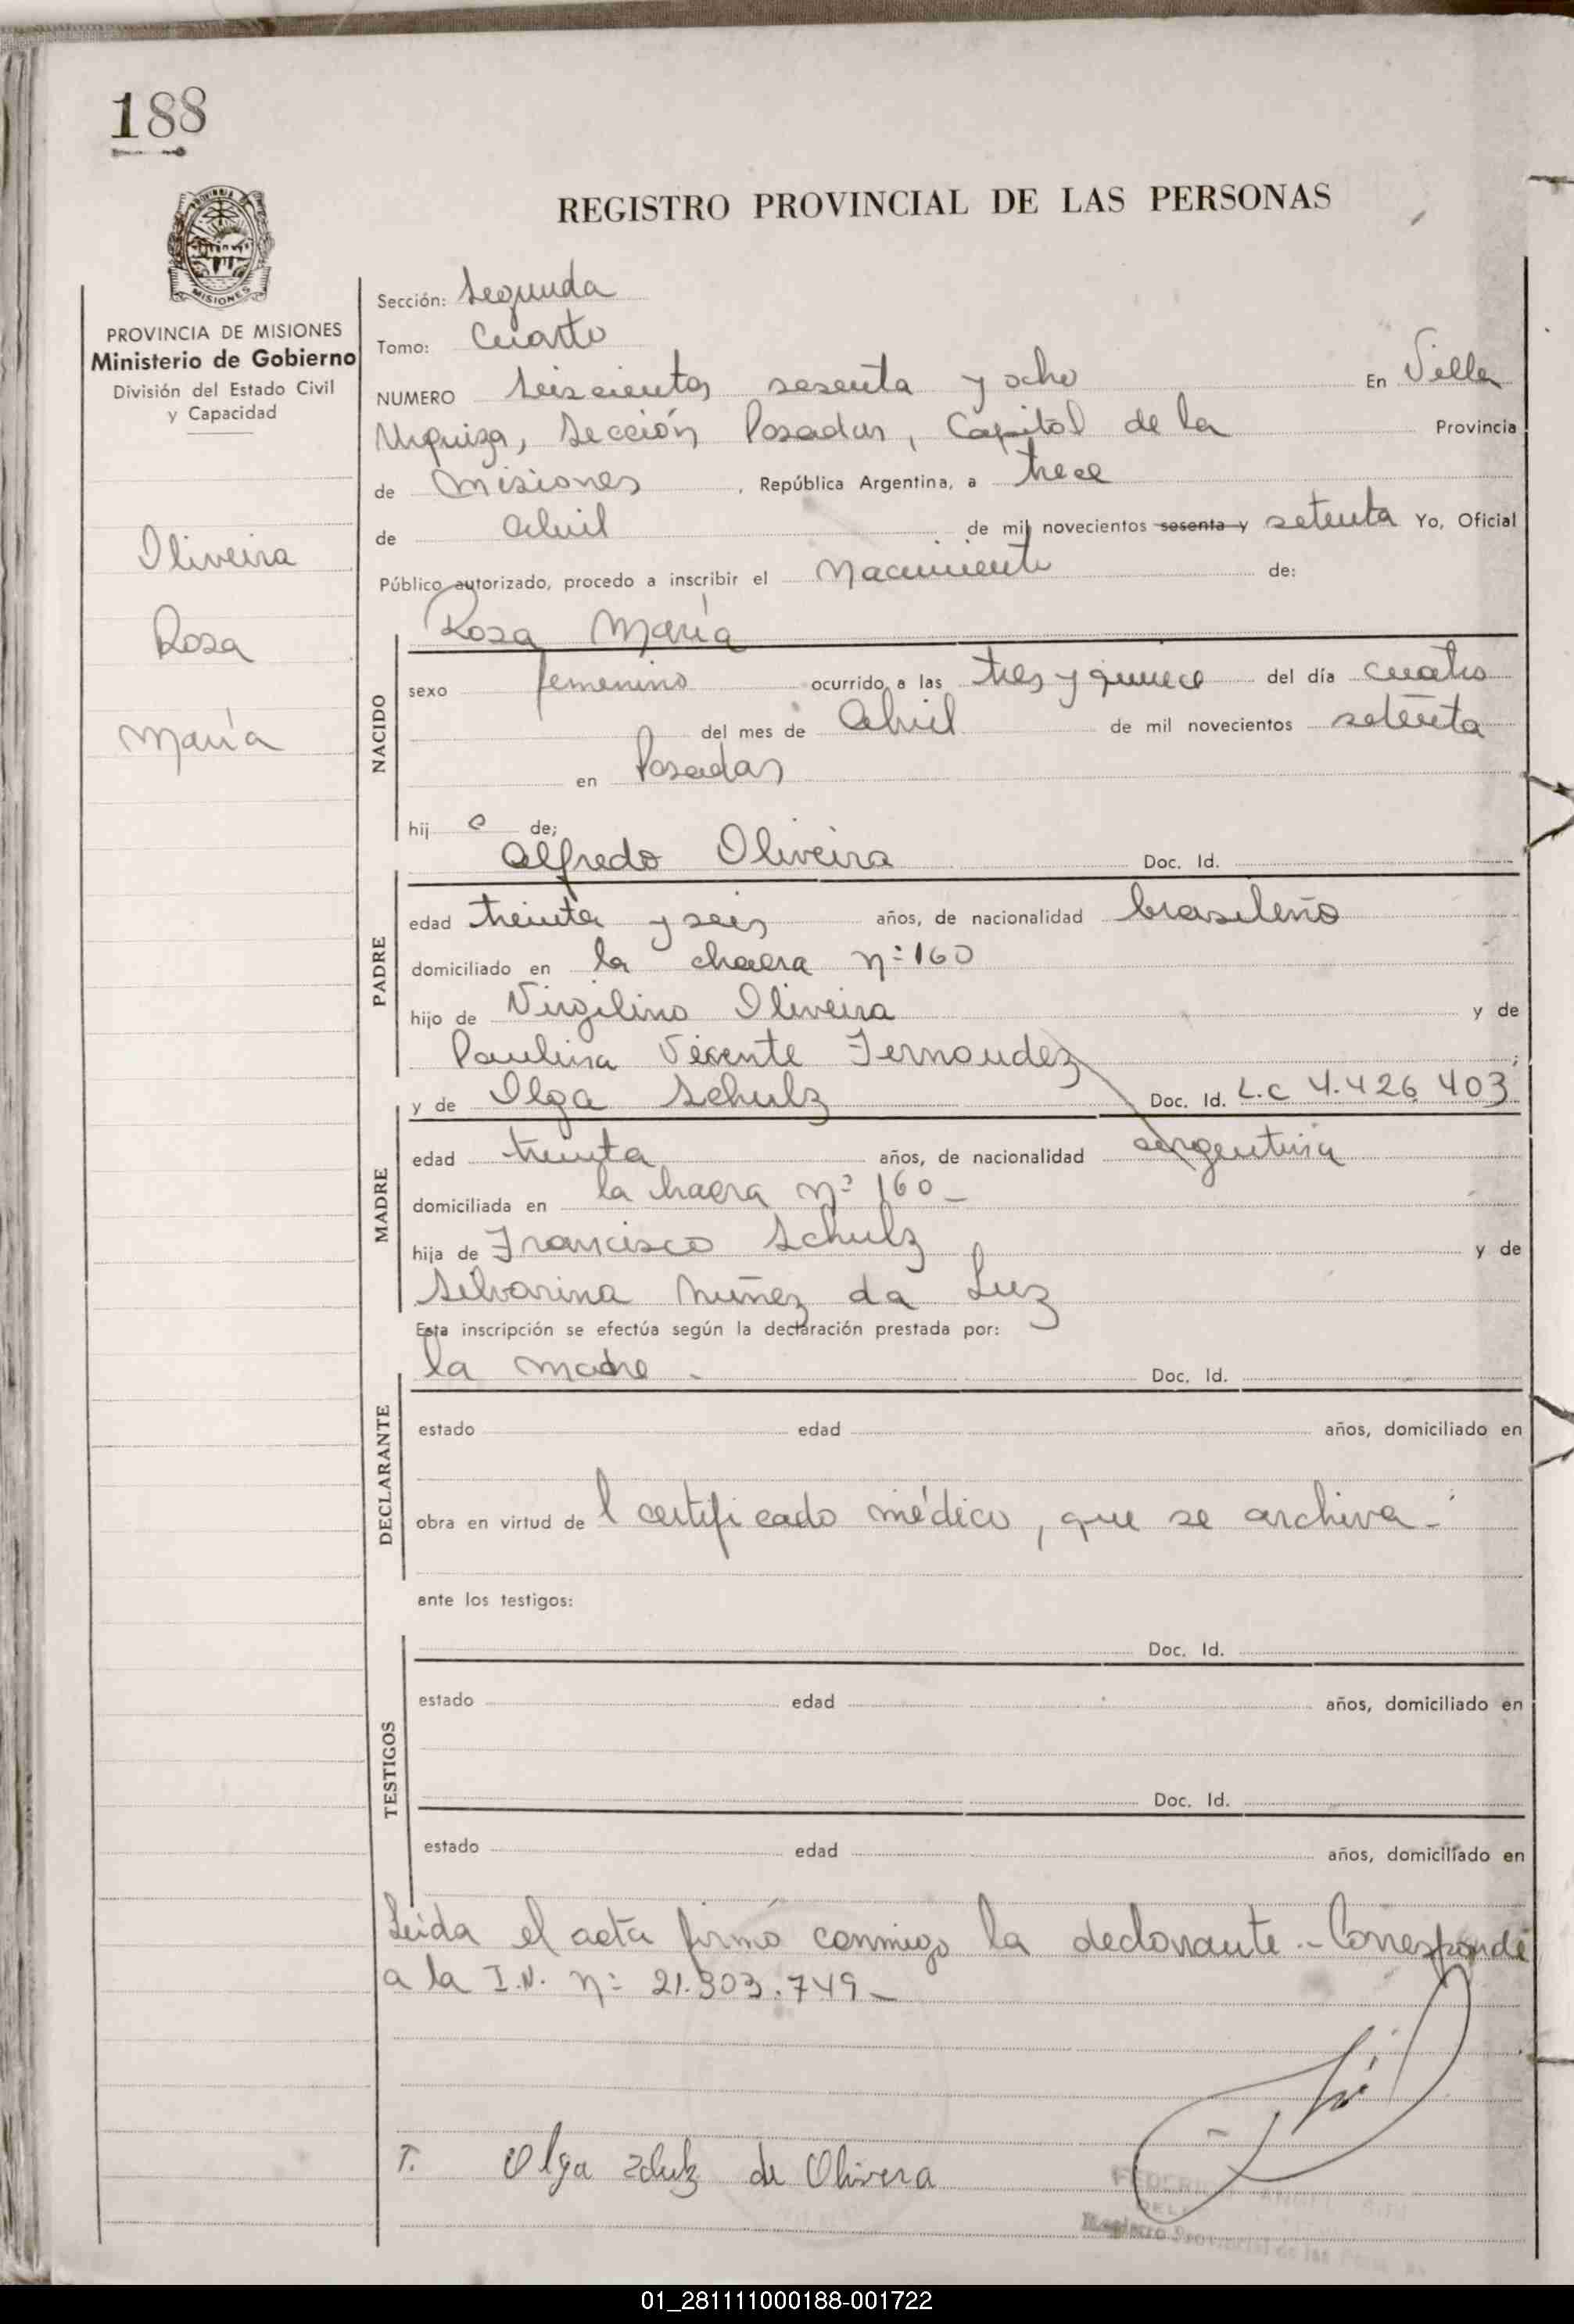 188
REGISTRO PROVINCIAL DE LAS PERSONAS
MISIONES
PROVINCIA DE MISIONES
Ministerio de Gobierno
División del Estado Civil
y Capacidad
Oliveira
Rosa
María
Sección: Segunda
Tomo: Cuarto
NUMERO Seiscientos sesenta y ocho En Villa
Urquiza, Sección Posadas, Capital de la Provincia
de Misiones, República Argentina, a trece
de abril de mil novecientos sesenta y setenta Yo, Oficial
Público autorizado, procedo a inscribir el Nacimiento de:
Rosa María
NACIDO
sexo femenino ocurrido a las tres y quince del día cuatro
del mes de Abril de mil novecientos setenta
en Posadas
hij a de;
Alfredo Oliveira Doc. Id.
PADRE
edad treinta y seis años, de nacionalidad brasileño
domiciliado en la chacra nº 160
hijo de Virgilino Oliveira y de
Paulina Vicente Fernandez;
y de Olga Schulz Doc. Id. L.C 4.426.403
MADRE
edad treinta años, de nacionalidad argentina
domiciliada en la chacra nº 160 -
hija de Francisco Schulz y de
Silvarina Nuñez da Luz
Esta inscripción se efectúa según la declaración prestada por:
la madre. Doc. Id.
DECLARANTE
estado edad años, domiciliado en
obra en virtud de l certificado médico, que se archiva.-
ante los testigos:
Doc. Id.
TESTIGOS
estado edad años, domiciliado en
Doc. Id.
estado edad años, domiciliado en
Leida el acta firmó conmigo la declarante.- Corresponde
a la I.N. nº 21.303.749-
T. Olga Schulz de Olivera
Registro Provincial de las
01_281111000188-001722